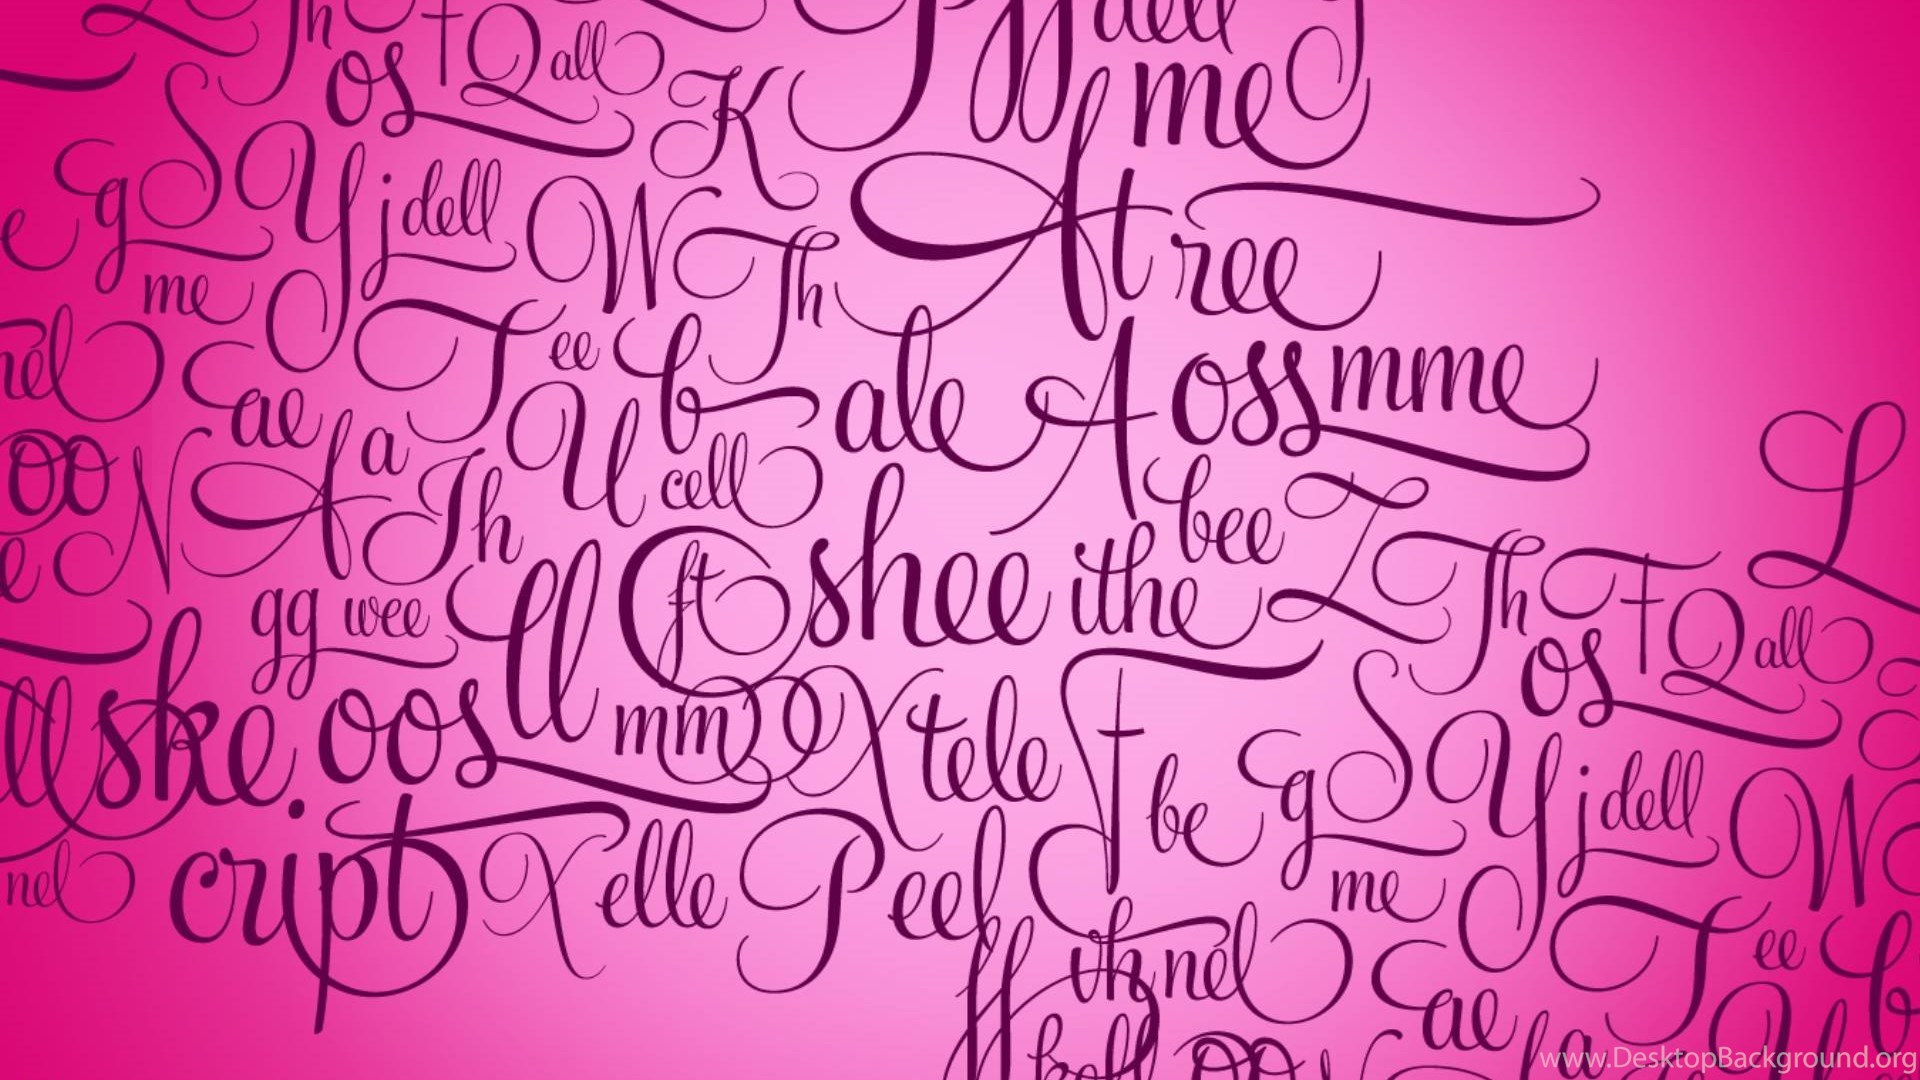 Th F Q all dell
os K me
S
e g Y j dell W Th At ree
me
nel E T ee b ale A oss mme
ae U L
oo N A a Th cell bee Z
e ft shee ithe Th F Q all
gg wee ll os
ll ske oos mm X tele F be g S Y j dell W
cript X elle Peel me
nel th nel E T ee b
ff ae U
koll oo N A a
www.DesktopBackground.org